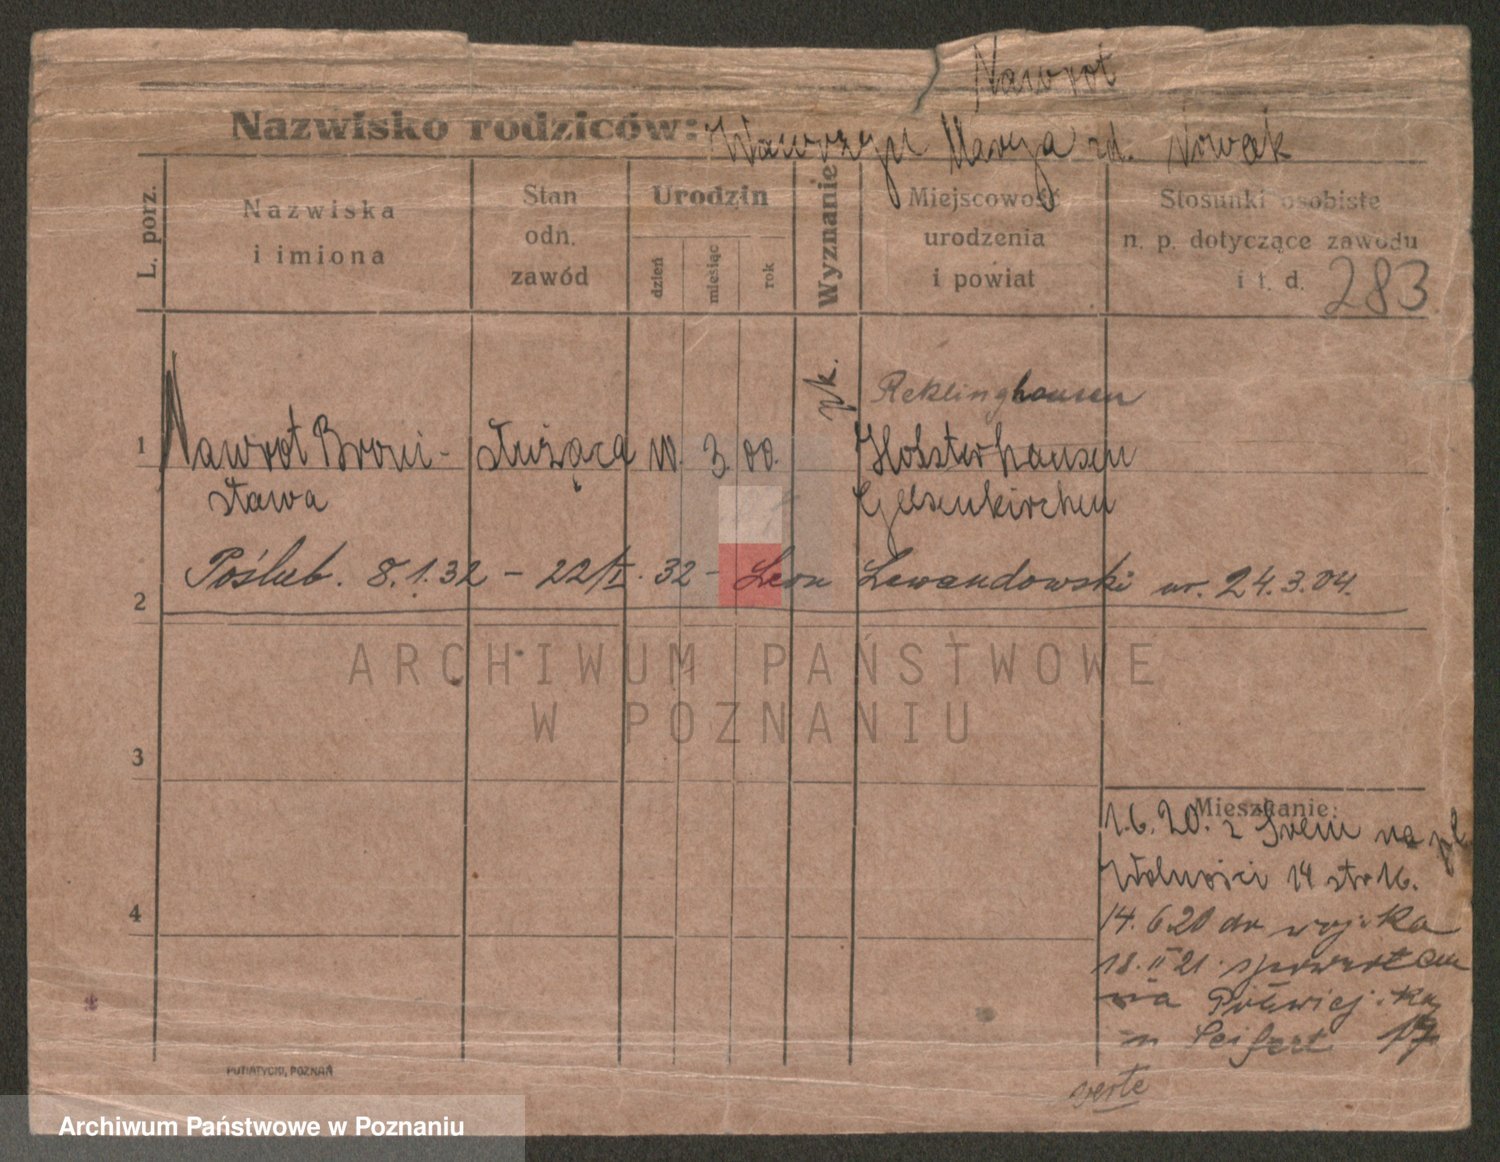 Nawrot
Nazwisko rodziców: Wawrzyn Marya rd. Nowak
L. porz.
Nazwiska
i imiona
Stan
odn.
zawód
Urodzin
dzień
miesiąc
rok
Wyznanie
Miejscowość
urodzenia
i powiat
Stosunki osobiste
n. p. dotyczące zawodu
i t. d.
283
Reklinghausen
1 Nawrot Broni- służąca 10. 3. 00. rk. Holsterhausen
sława Gelsenkirchen
2 Poślub. 8.1.32 - 22/I. 32 - Leon Lewandowski ur. 24.3.04.
ARCHIWUM PAŃSTWOWE
W POZNANIU
3
Mieszkanie:
1.6.20. z Śrem na pl
Wolności 14 str 16.
4
14. 6 20 do wojska
18. II 21. spowrotem
na Półwiejską
Seifert 17
verte
PUTIATYCKI, POZNAŃ
Archiwum Państwowe w Poznaniu